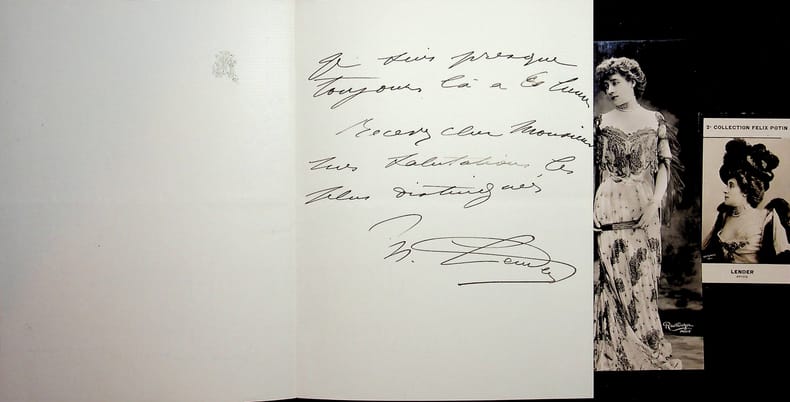 Je suis presque
toujours là à
Recevez cher Monsieur
mes salutations les
plus distinguées
M. Lender
Reutlinger
PARIS
2e COLLECTION FELIX POTIN
LENDER